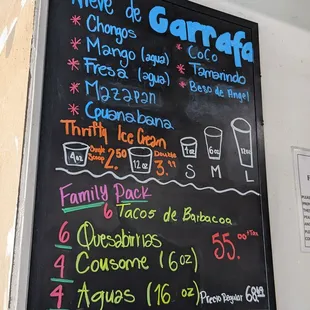 Nieve de Garrafa
* Chongos
* CoCo
* Mango (agua)
* Tamarindo
* Fresa (agua)
* Beso de Angel
* Mazapan
* Guanabana
Thrifty Ice Cream
4oz Single Scoop 2.50 12oz Double 3.99
4oz 6oz 12oz
S M L
Family Pack
6 Tacos de Barbacoa
6 Quesabirrias 55.00 +Tax
4 Cousome (16oz)
4 Aguas (16 oz) Precio Regular 68.49